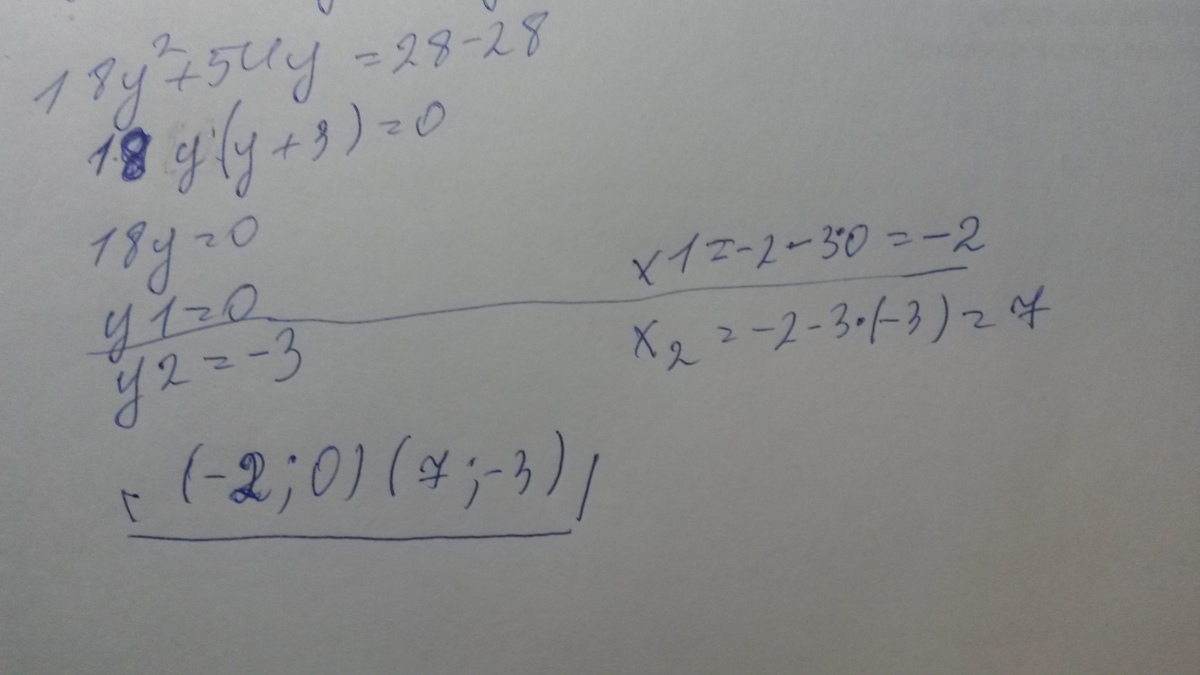 18y²+54y=28-28
18 y(y+3)=0
18y=0
y1=0
x1=-2-3·0=-2
y2=-3
x₂=-2-3·(-3)=7
(-2;0)(7;-3)